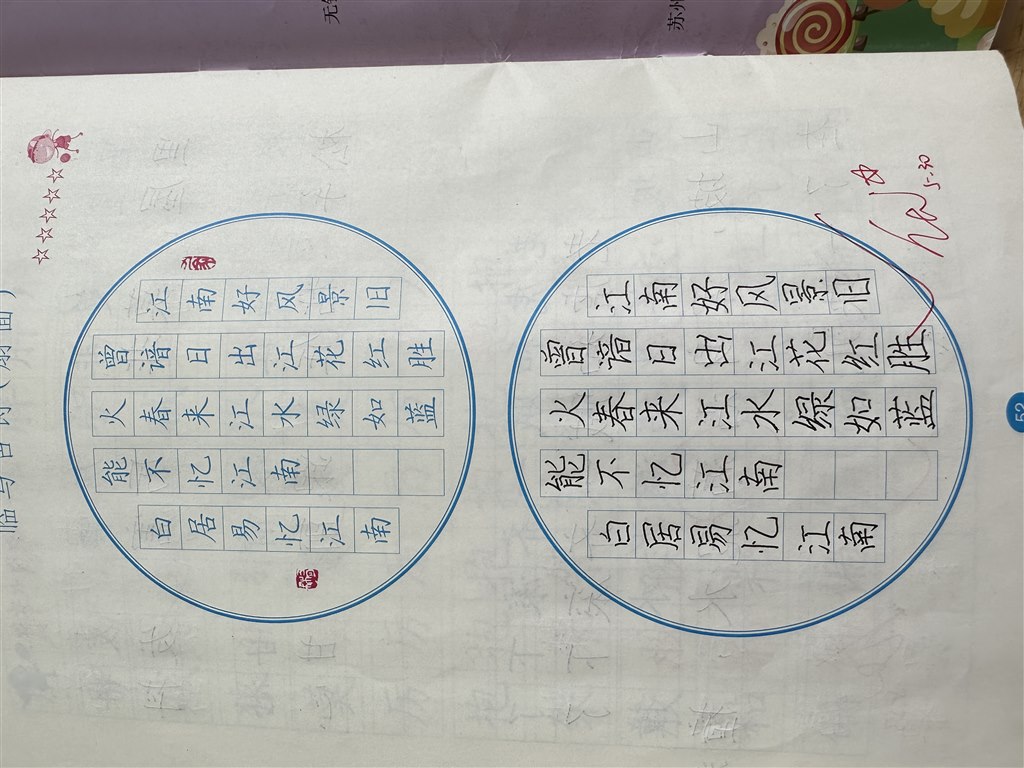 江南好风景旧
曾谙日出江花红胜
火春来江水绿如蓝
能不忆江南
白居易忆江南
江南好风景旧
曾谙日出江花红胜
火春来江水绿如蓝
能不忆江南
白居易忆江南
5.30
52